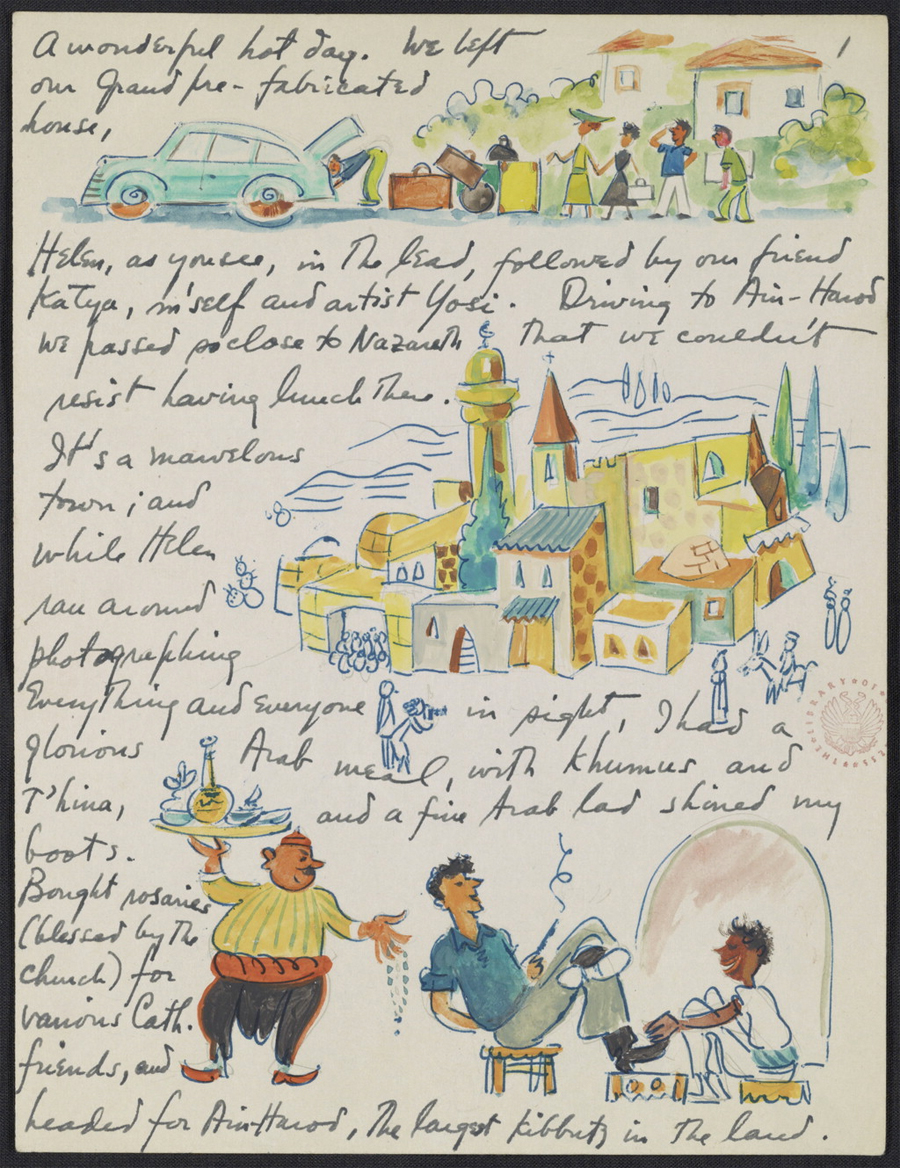 1
A wonderful hot day. We left
our grand pre-fabricated
house,
Helen, as you see, in the lead, followed by our friend
Katya, m'self and artist Yosi. Driving to Ain-Harod
we passed so close to Nazareth that we couldn't
resist having lunch there.
It's a marvelous
town; and
while Helen
ran around
photographing
Everything and everyone in sight, I had a
glorious Arab meal, with Khumus and
T'hina, and a fine Arab lad shined my
boots.
Bought rosaries
(blessed by the
church) for
various Cath.
friends, and
headed for Ain-Harod, the largest Kibbutz in the land.